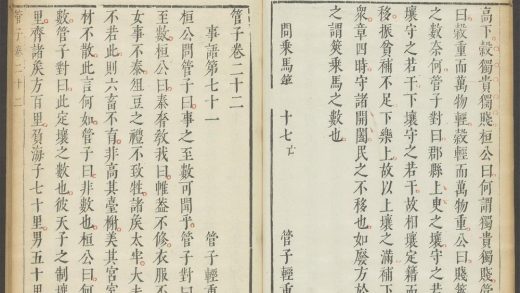 高下穀獨貴獨賤桓公曰何謂獨貴獨賤管
曰穀重而萬物輕穀輕而萬物重公曰賤筴
之數奈何管子對曰郡縣上臾之壤守之若
壤守之若干下壤守之若干故相壤定籍而
移振貧補不足下樂上故以上壤之滿補下
衆章四時守諸開闔民之不移也如廢方於
之謂筴乘馬之數也
問乘馬第 十七亡 管子輕重
管子卷二十二
事語第七十一 管子輕重
桓公問管子曰事之至數可聞乎管子對
至數桓公曰秦奢教我曰帷蓋不修衣服
女事不泰俎豆之禮不致牲諸侯太牢大
不若此則六畜不育非高其臺榭美其宮
材不散此言何如管子曰非數也桓公曰
數管子對曰此定壤之數也彼天子之制
里齊諸侯方百里負海子七十里男五十里
管子卷二十二